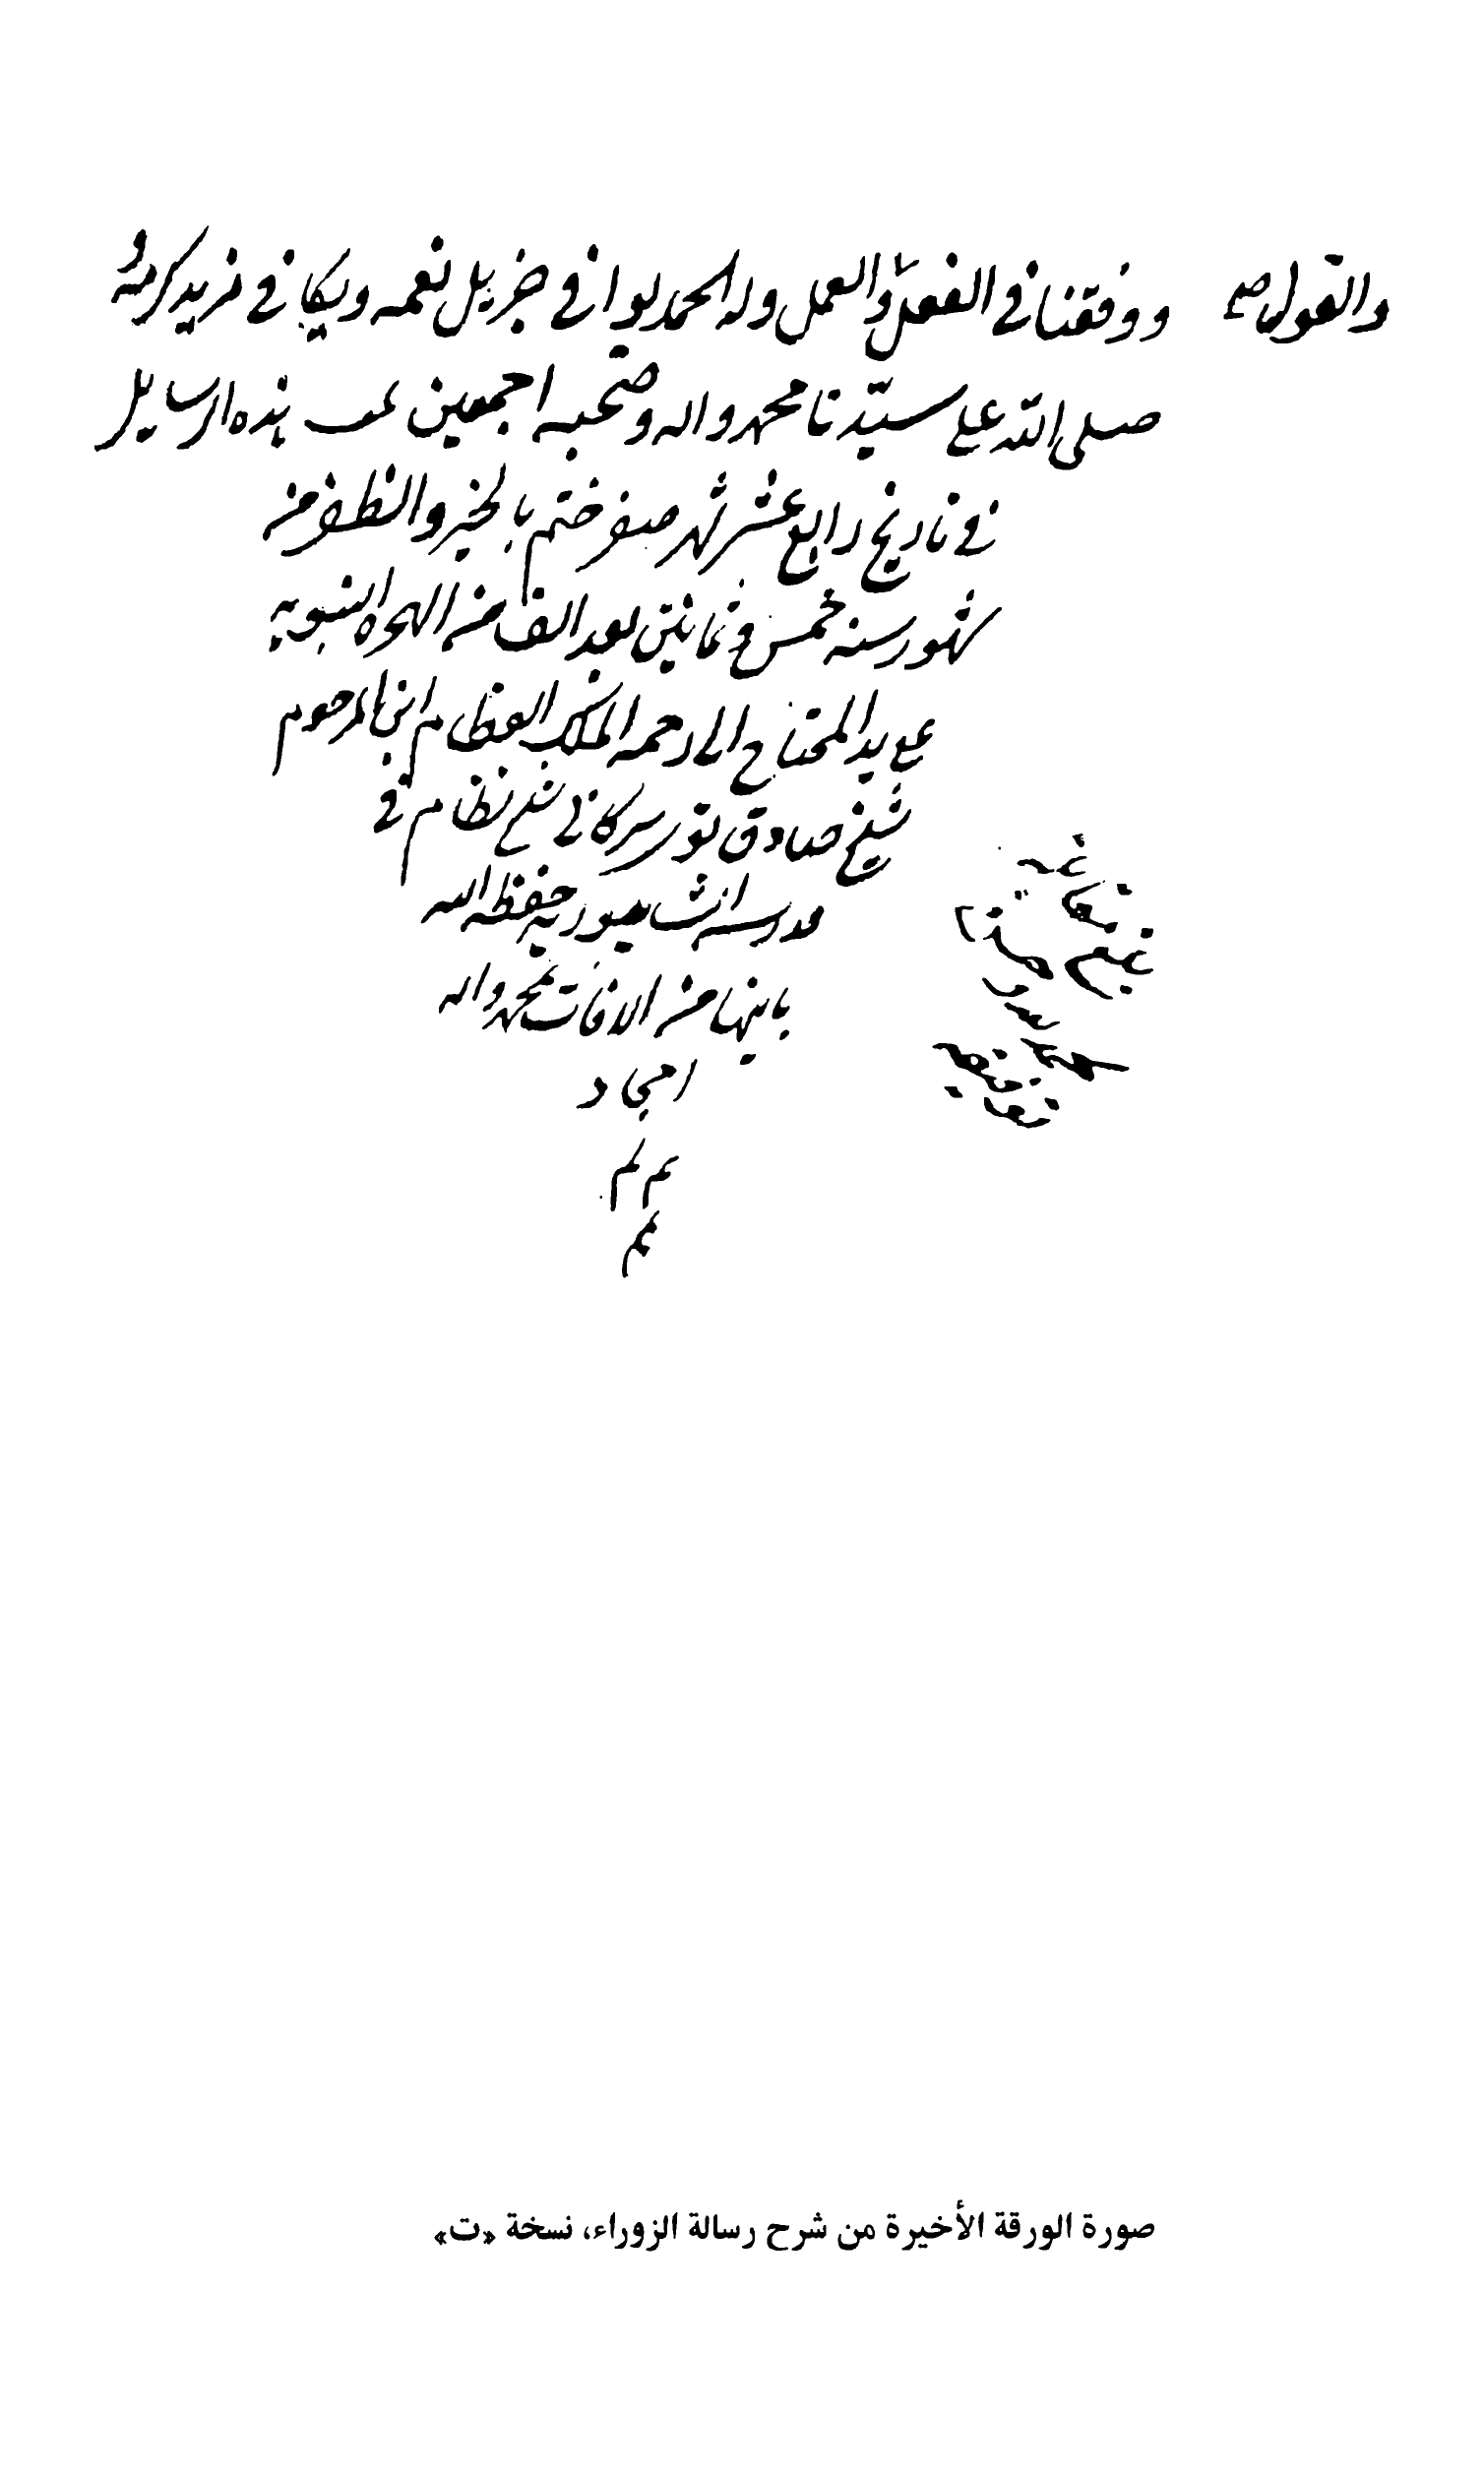 والقول صح
ووفقنا في الفعل والعمل وله الحمد يوافي جزيل نعمه ويكافي مزيد كرمه
صلى الله على سيدنا محمد واله وصحبه اجمعين تمت هذه الرسايل
في تاريخ رابع عشر شهر صفر ختم بالخير والظفر من
شهور سنه خمس وثمانين بعد الف من الهجره النبويه
على يد المحتاج الى رحمه الملك العظام ابن المرحوم
شيخ صادق تويسركاني شيخ نظام في
مدرسه حفظه الله
بانيها من الافات بمحمد واله
امجاد
تم تم
تم
صورة الورقة الأخيرة من شرح رسالة الزوراء، نسخة «ت»